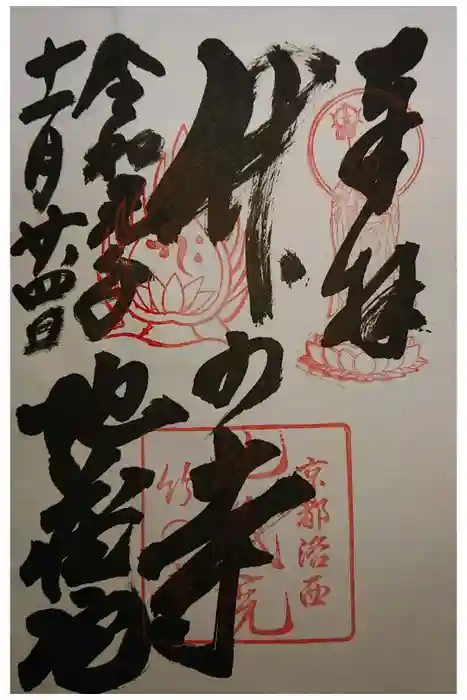 奉拝
竹の寺
令和元年
十一月廿四日
地蔵院
京都洛西
地蔵院
竹の寺